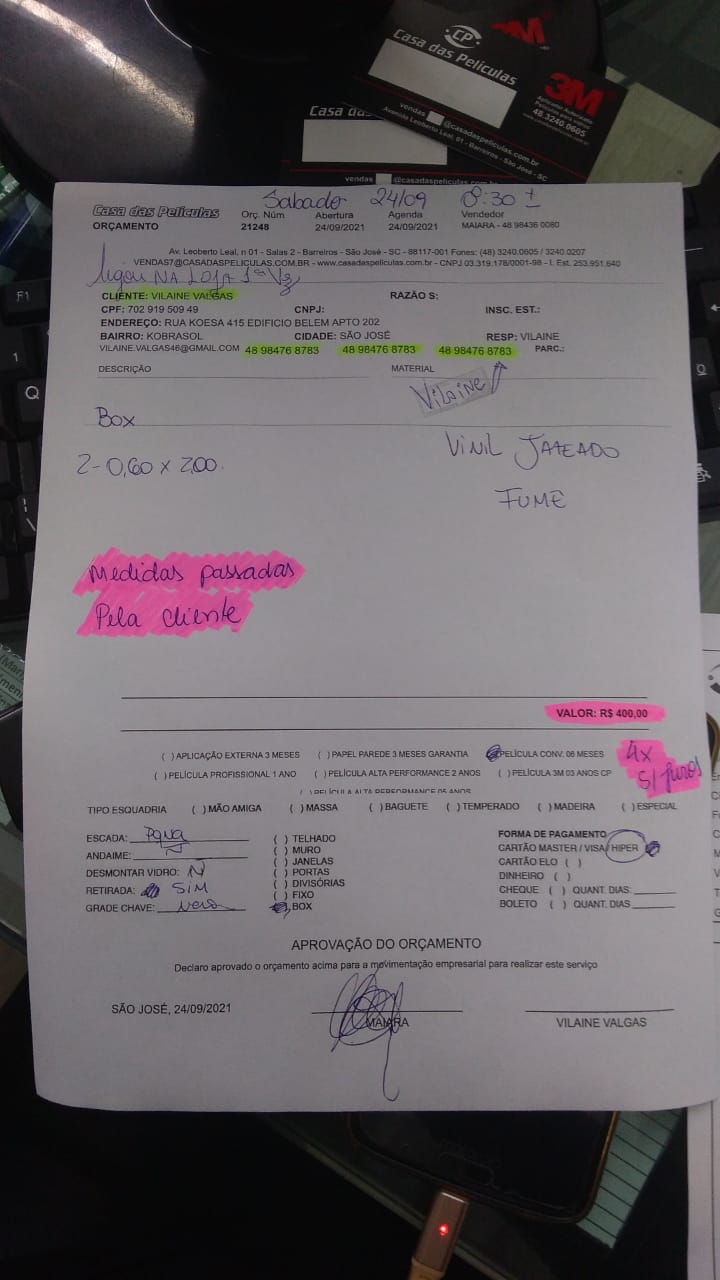 CP
Casa das Películas
3M
Aplicador Autorizado
Películas para vidros
48 3240.0605
vendas @casadaspeliculas.com.br
Avenida Leoberto Leal, 01 - Barreiros - São José - SC
Casa das
vendas @casadaspeliculas.com.br
Sabado 24/09 8:30 ±
Casa das Películas Orç. Núm Abertura Agenda Vendedor
ORÇAMENTO 21248 24/09/2021 24/09/2021 MAIARA - 48 98436 0080
Av. Leoberto Leal, n 01 - Salas 2 - Barreiros - São José - SC - 88117-001 Fones: (48) 3240.0605 / 3240.0207
VENDAS7@CASADASPELICULAS.COM.BR - www.casadaspeliculas.com.br - CNPJ 03.319.178/0001-98 - I. Est. 253.951.640
Ligou NA LOJA 1ª Vz
CLIENTE: VILAINE VALGAS RAZÃO S:
CPF: 702 919 509 49 CNPJ: INSC. EST.:
ENDEREÇO: RUA KOESA 415 EDIFICIO BELEM APTO 202
BAIRRO: KOBRASOL CIDADE: SÃO JOSÉ RESP: VILAINE
VILAINE.VALGAS46@GMAIL.COM 48 98476 8783 48 98476 8783 48 98476 8783 PARC.:
DESCRIÇÃO MATERIAL
Vilaine
Box
VINIL JATEADO
2-0,60 x 2,00.
FUME
Medidas passadas
Pela cliente
VALOR: R$ 400,00
( ) APLICAÇÃO EXTERNA 3 MESES ( ) PAPEL PAREDE 3 MESES GARANTIA PELÍCULA CONV. 06 MESES 4x
( ) PELÍCULA PROFISSIONAL 1 ANO ( ) PELÍCULA ALTA PERFORMANCE 2 ANOS ( ) PELÍCULA 3M 03 ANOS CP S/ juros
( ) PELÍCULA ALTA PERFORMANCE 05 ANOS
TIPO ESQUADRIA ( ) MÃO AMIGA ( ) MASSA ( ) BAGUETE ( ) TEMPERADO ( ) MADEIRA ( ) ESPECIAL
ESCADA: Pqna
ANDAIME: Ñ
DESMONTAR VIDRO: Ñ
RETIRADA: SIM
GRADE CHAVE:
( ) TELHADO
( ) MURO
( ) JANELAS
( ) PORTAS
( ) DIVISÓRIAS
( ) FIXO
BOX
FORMA DE PAGAMENTO
CARTÃO MASTER / VISA / HIPER
CARTÃO ELO ( )
DINHEIRO ( )
CHEQUE ( ) QUANT. DIAS:
BOLETO ( ) QUANT. DIAS
APROVAÇÃO DO ORÇAMENTO
Declaro aprovado o orçamento acima para a movimentação empresarial para realizar este serviço
SÃO JOSÉ, 24/09/2021
MAIARA VILAINE VALGAS